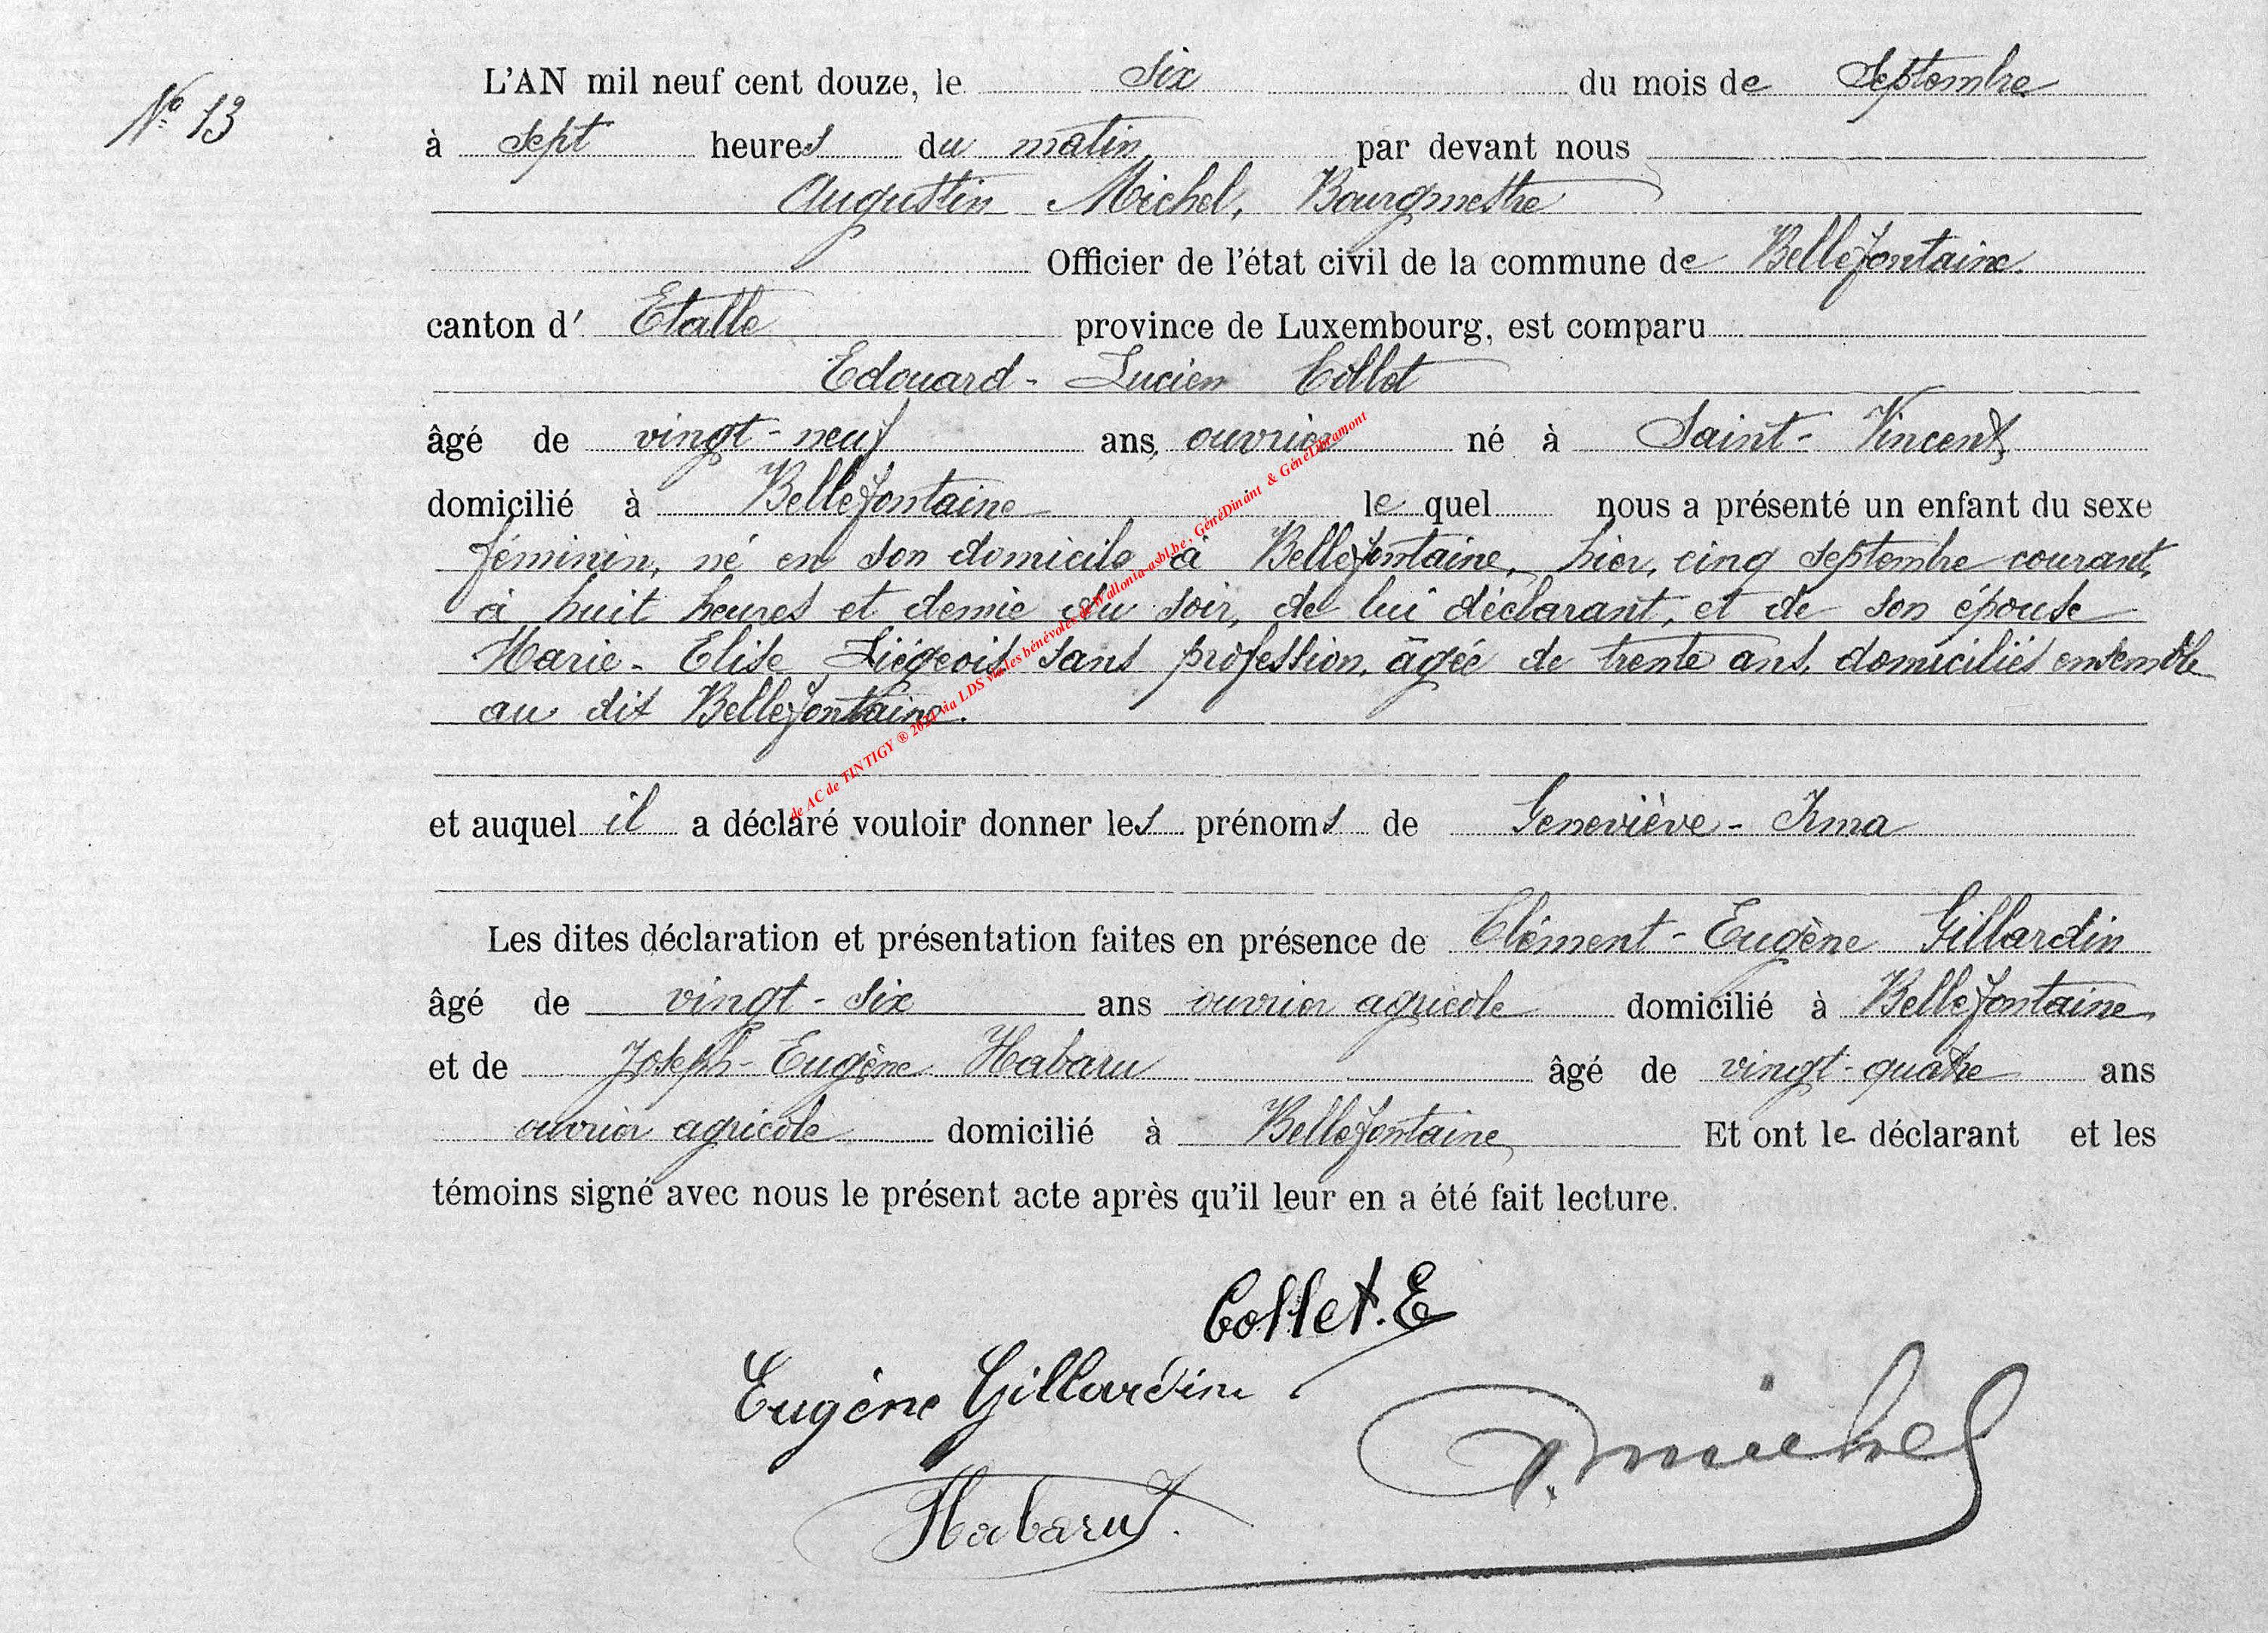 N° 13
L'AN mil neuf cent douze, le six du mois de Septembre
à sept heures du matin par devant nous
Augustin Michel, Bourgmestre
Officier de l'état civil de la commune de Bellefontaine
canton d' Etalle province de Luxembourg, est comparu
Edouard-Lucien Collet
âgé de vingt-neuf ans, ouvrier né à Saint-Vincent,
domicilié à Bellefontaine lequel nous a présenté un enfant du sexe
féminin, né en son domicile à Bellefontaine, hier, cinq septembre courant,
à huit heures et demie du soir, de lui déclarant, et de son épouse
Marie-Elise Liégeois sans profession, âgée de trente ans, domiciliés ensemble
au dit Bellefontaine.
et auquel il a déclaré vouloir donner les prénoms de Geneviève-Irma
Les dites déclaration et présentation faites en présence de Clément-Eugène Gillardin
âgé de vingt-six ans ouvrier agricole domicilié à Bellefontaine,
et de Joseph-Eugène Habaru âgé de vingt-quatre ans
ouvrier agricole domicilié à Bellefontaine, Et ont le déclarant et les
témoins signé avec nous le présent acte après qu'il leur en a été fait lecture.
Collet. E
Eugène Gillardin
A. Michel
Habaru J.
de AC de TINTIGY ® 2021 via LDS via les bénévoles de Wallonia-asbl.be, GénéDinant & GénéLibramont